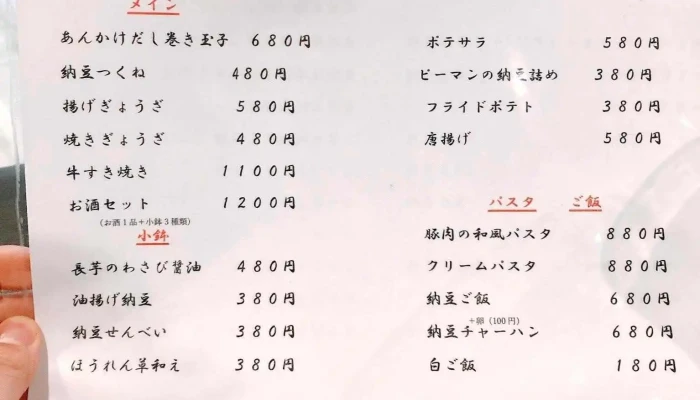 メイン
あんかけだし巻き玉子 680円
納豆つくね 480円
揚げぎょうざ 580円
焼きぎょうざ 480円
牛すき焼き 1100円
お酒セット 1200円
(お酒1品+小鉢3種類)
小鉢
長芋のわさび醤油 480円
油揚げ納豆 380円
納豆せんべい 380円
ほうれん草和え 380円
ポテサラ 580円
ピーマンの納豆詰め 380円
フライドポテト 380円
唐揚げ 580円
パスタ ご飯
豚肉の和風パスタ 880円
クリームパスタ 880円
納豆ご飯 680円
+卵 (100円)
納豆チャーハン 680円
白ご飯 180円